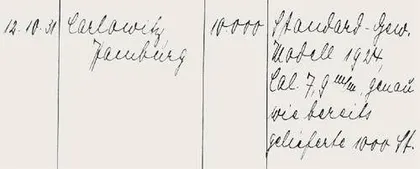 12.10.31 Carlowitz 10000 Standard-Gew.
Hamburg Modell 1924,
Cal. 7,9 m/m, genau
wie bereits
gelieferte 1000 St.